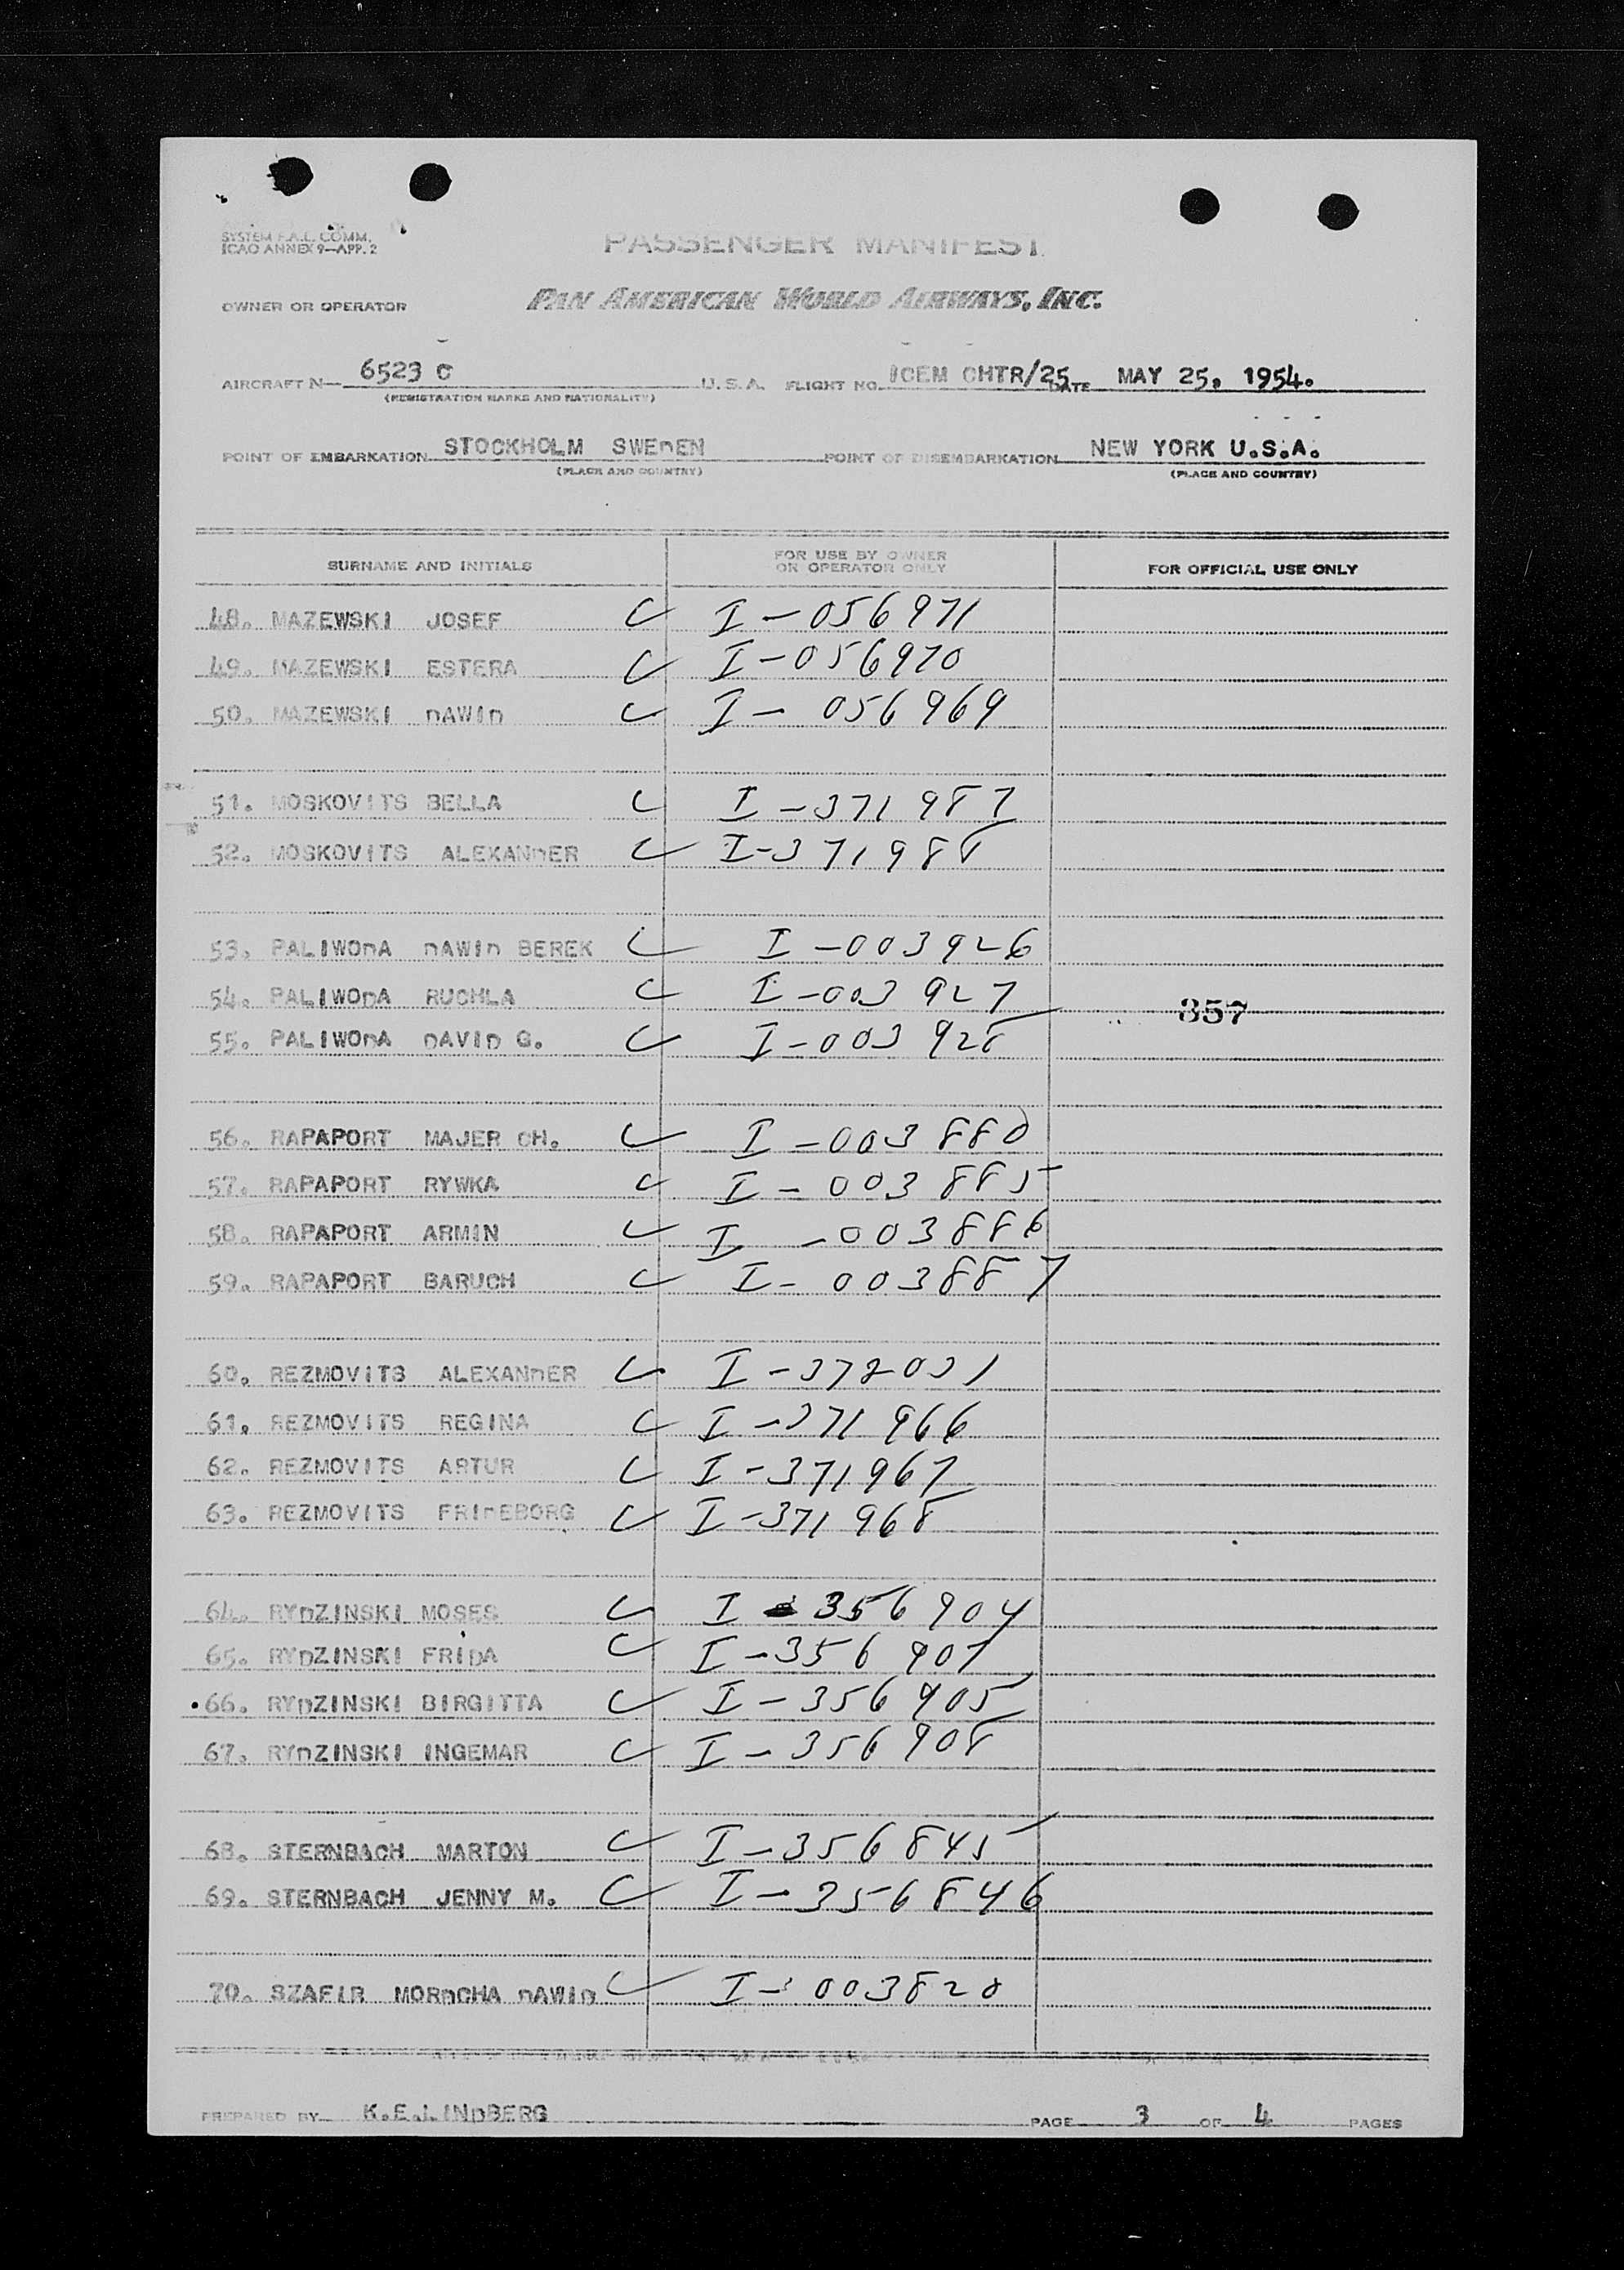 SYSTEM F.A.L. COMM.
ICAO ANNEX 9—APP. 2
PASSENGER MANIFEST
OWNER OR OPERATOR PAN AMERICAN WORLD AIRWAYS, INC.
AIRCRAFT N— 6523 C U.S.A. FLIGHT NO. ICEM CHTR/25 DATE MAY 25, 1954.
(REGISTRATION MARKS AND NATIONALITY)
POINT OF EMBARKATION STOCKHOLM SWEDEN POINT OF DISEMBARKATION NEW YORK U.S.A.
(PLACE AND COUNTRY) (PLACE AND COUNTRY)
SURNAME AND INITIALS FOR USE BY OWNER OR OPERATOR ONLY FOR OFFICIAL USE ONLY
48. MAZEWSKI JOSEF I-056971
49. MAZEWSKI ESTERA I-056970
50. MAZEWSKI DAWID I-056969
51. MOSKOVITS BELLA I-371987
52. MOSKOVITS ALEXANDER I-371988
53. PALIWODA DAWID BEREK I-003926
54. PALIWODA RUCHLA I-003927 357
55. PALIWODA DAVID G. I-003928
56. RAPAPORT MAJER CH. I-003880
57. RAPAPORT RYWKA I-003885
58. RAPAPORT ARMIN I-003886
59. RAPAPORT BARUCH I-003887
60. REZMOVITS ALEXANDER I-372031
61. REZMOVITS REGINA I-371966
62. REZMOVITS ARTUR I-371967
63. REZMOVITS FRIDEBORG I-371968
64. RYDZINSKI MOSES I-356904
65. RYDZINSKI FRIDA I-356907
66. RYDZINSKI BIRGITTA I-356905
67. RYDZINSKI INGEMAR I-356908
68. STERNBACH MARTON I-356845
69. STERNBACH JENNY M. I-356846
70. SZAFIR MORDCHA DAWID I-003820
PREPARED BY K.E.LINDBERG PAGE 3 OF 4 PAGES